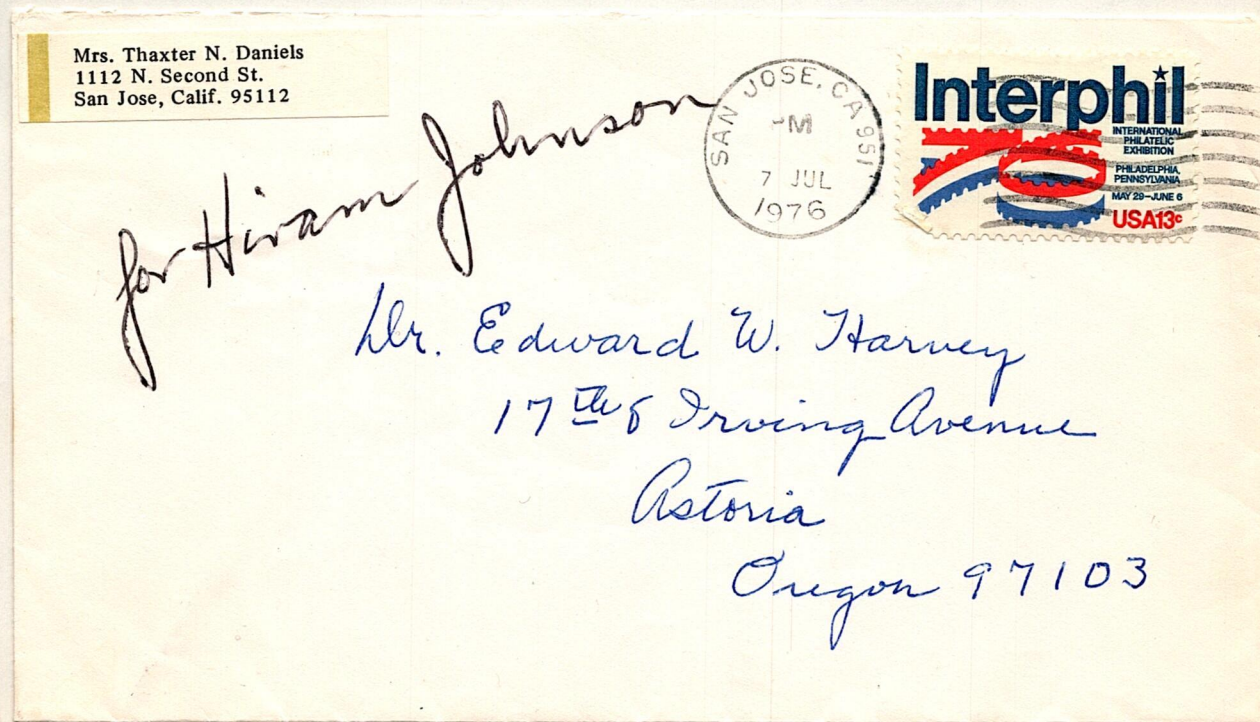 Mrs. Thaxter N. Daniels
1112 N. Second St.
San Jose, Calif. 95112
for Hiram Johnson
SAN JOSE, CA 951
PM
7 JUL
1976
Interphil
INTERNATIONAL
PHILATELIC
EXHIBITION
PHILADELPHIA,
PENNSYLVANIA
MAY 29–JUNE 6
USA13c
Dr. Edward W. Harvey
17th & Irving Avenue
Astoria
Oregon 97103